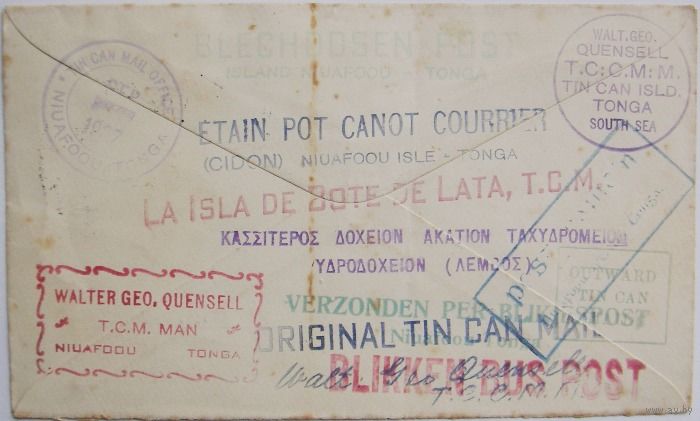 BLECHDOSEN POST
ISLAND NIUAFOOU - TONGA
WALT. GEO.
QUENSELL
T.C:C.M:M.
TIN CAN ISLD.
TONGA
SOUTH SEA
TIN CAN MAIL OFFICE
NIUAFOOU, TONGA
ETAIN POT CANOT COURRIER
(CIDON) NIUAFOOU ISLE - TONGA
LA ISLA DE BOTE DE LATA, T.C.M.
ΚΑΣΣΙΤΕΡΟΣ ΔΟΧΕΙΟΝ ΑΚΑΤΙΟΝ ΤΑΧΥΔΡΟΜΕΙΟΝ
ΥΔΡΟΔΟΧΕΙΟΝ (ΛΕΜΒΟΣ)
OUTWARD
TIN CAN
WALTER GEO, QUENSELL
T.C.M. MAN
NIUAFOOU TONGA
VERZONDEN PER BLIKPOST
ORIGINAL TIN CAN MAIL
BLIKKEN BUS POST
Walt. Geo Quensell
T.C.C.M.M.
www.ay.by